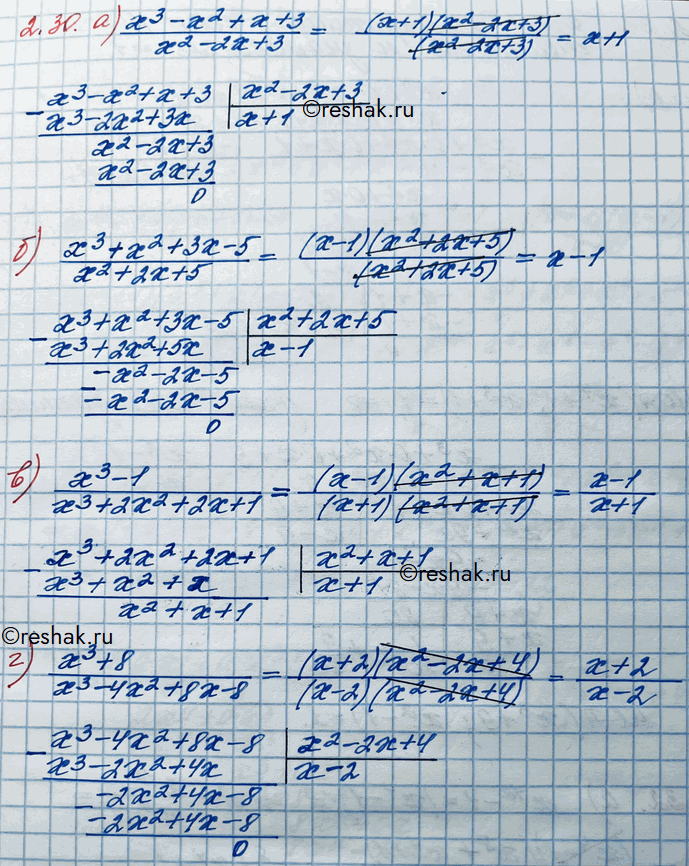 2.30. а) x³-x²+x+3 / x²-2x+3 = (x+1)(x²-2x+3) / (x²-2x+3) = x+1
- x³-x²+x+3 | x²-2x+3
x³-2x²+3x | x+1
©reshak.ru
x²-2x+3
x²-2x+3
0
б) x³+x²+3x-5 / x²+2x+5 = (x-1)(x²+2x+5) / (x²+2x+5) = x-1
- x³+x²+3x-5 | x²+2x+5
x³+2x²+5x | x-1
- -x²-2x-5
-x²-2x-5
0
в) x³-1 / x³+2x²+2x+1 = (x-1)(x²+x+1) / (x+1)(x²+x+1) = x-1 / x+1
- x³+2x²+2x+1 | x²+x+1
x³+x²+x | x+1
©reshak.ru
x²+x+1
©reshak.ru
г) x³+8 / x³-4x²+8x-8 = (x+2)(x²-2x+4) / (x-2)(x²-2x+4) = x+2 / x-2
- x³-4x²+8x-8 | x²-2x+4
x³-2x²+4x | x-2
- -2x²+4x-8
-2x²+4x-8
0